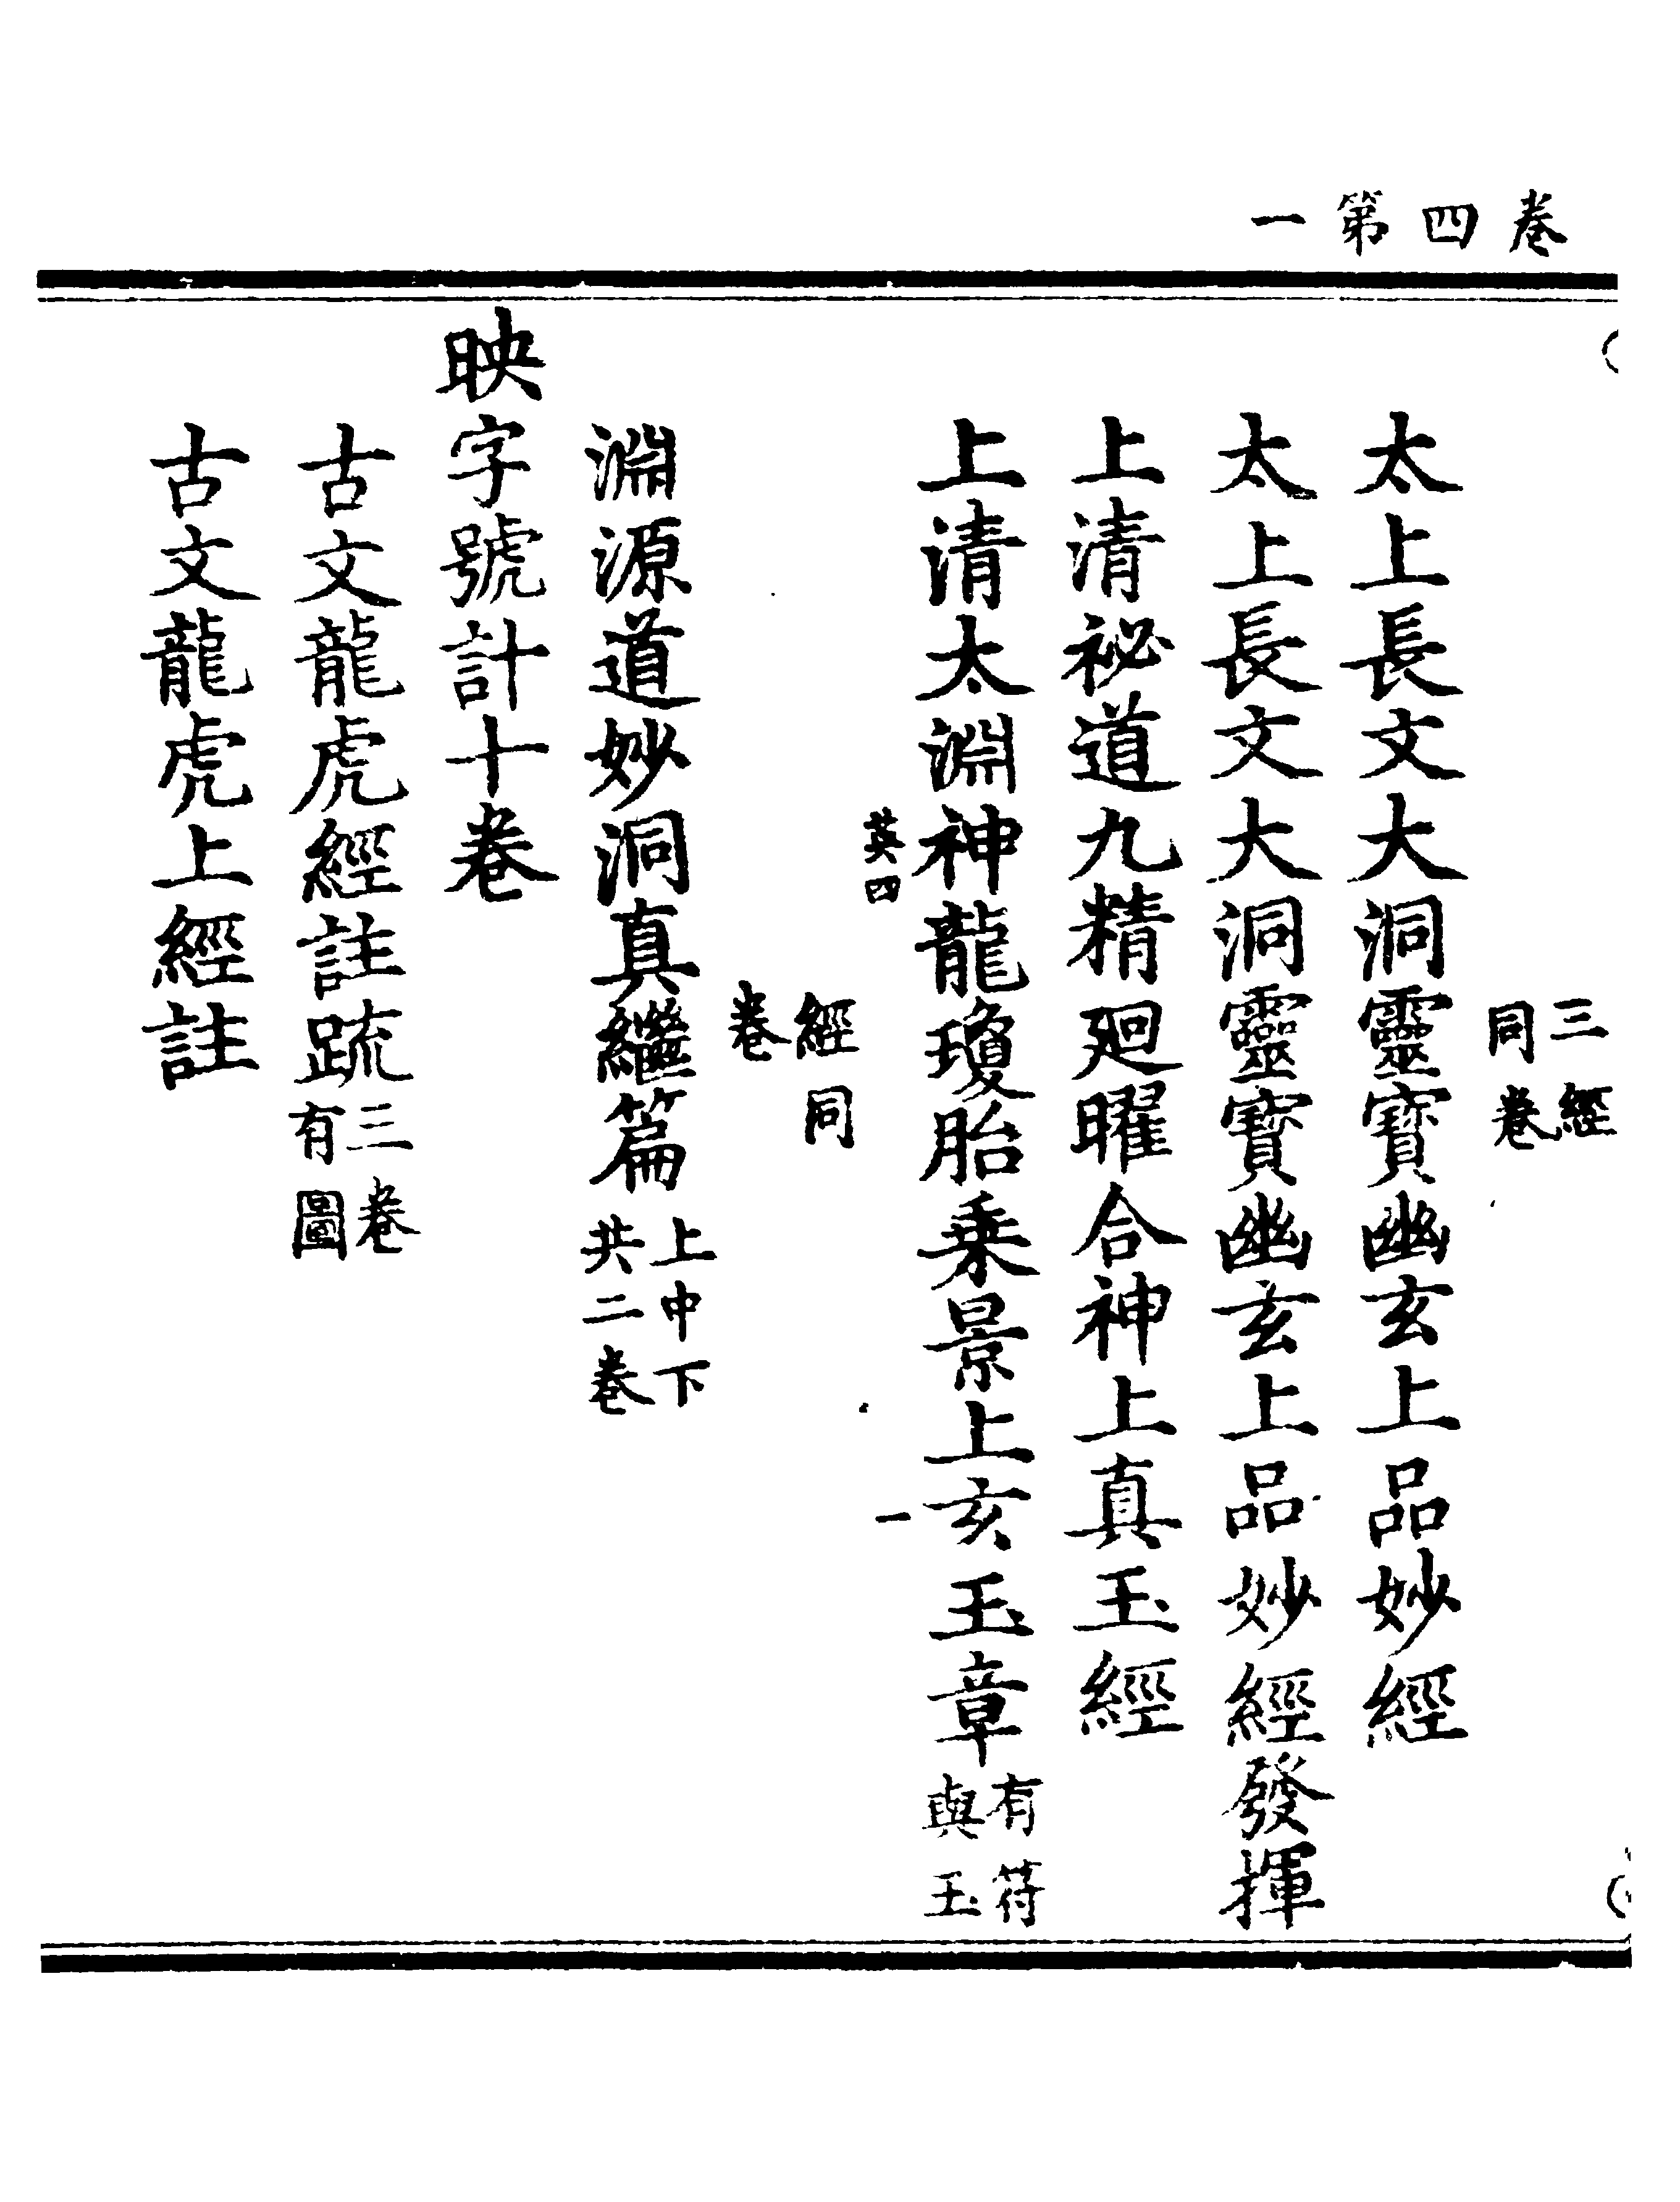 卷四第一
三經
同卷
太上長文大洞靈寶幽玄上品妙經
太上長文大洞靈寶幽玄上品妙經發揮
上清祕道九精廻曜合神上真玉經
上清太淵神龍瓊胎乘景上玄玉章有符
與玉
英四 一
經同
卷
淵源道妙洞真繼篇上中下
共二卷
映字號計十卷
古文龍虎經註疏三卷
有圖
古文龍虎上經註